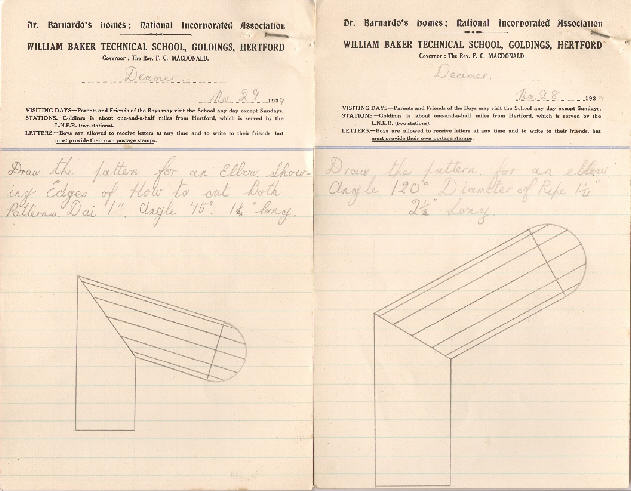 Dr. Barnardo's Homes; National Incorporated Association
WILLIAM BAKER TECHNICAL SCHOOL, GOLDINGS, HERTFORD
Governor: The Rev. F. C. MACDONALD.
Deamer.
Nov 29 193
VISITING DAYS—Parents and Friends of the Boys may visit the School any day except Sundays.
STATIONS. Goldings is about one-and-a-half miles from Hertford, which is served by the
L.N.E.R. (two stations).
LETTERS—Boys are allowed to receive letters at any time and to write to their friends, but
must provide their own postage stamps.
Draw the pattern for an Elbow show-
ing Edges of How to cut both
Patterns Dai 1" Angle 45° long.
Dr. Barnardo's Homes; National Incorporated Association
WILLIAM BAKER TECHNICAL SCHOOL, GOLDINGS, HERTFORD
Governor: The Rev. F. C. MACDONALD
Deamer.
Nov 28 193
VISITING DAYS—Parents and Friends of the Boys may visit the School any day except Sundays.
STATIONS—Goldings is about one-and-a-half miles from Hertford, which is served by the
L.N.E.R. (two stations).
LETTERS—Boys are allowed to receive letters at any time and to write to their friends, but
must provide their own postage stamps.
Draw the pattern for an elbow
Angle 120° Diameter of Pipe
long.